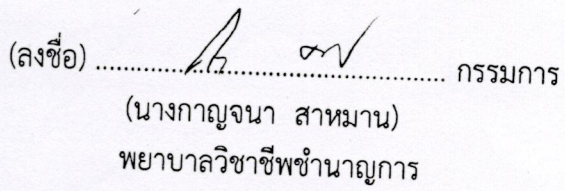 (ลงชื่อ) ........................................................ กรรมการ
(นางกาญจนา สาหมาน)
พยาบาลวิชาชีพชำนาญการ